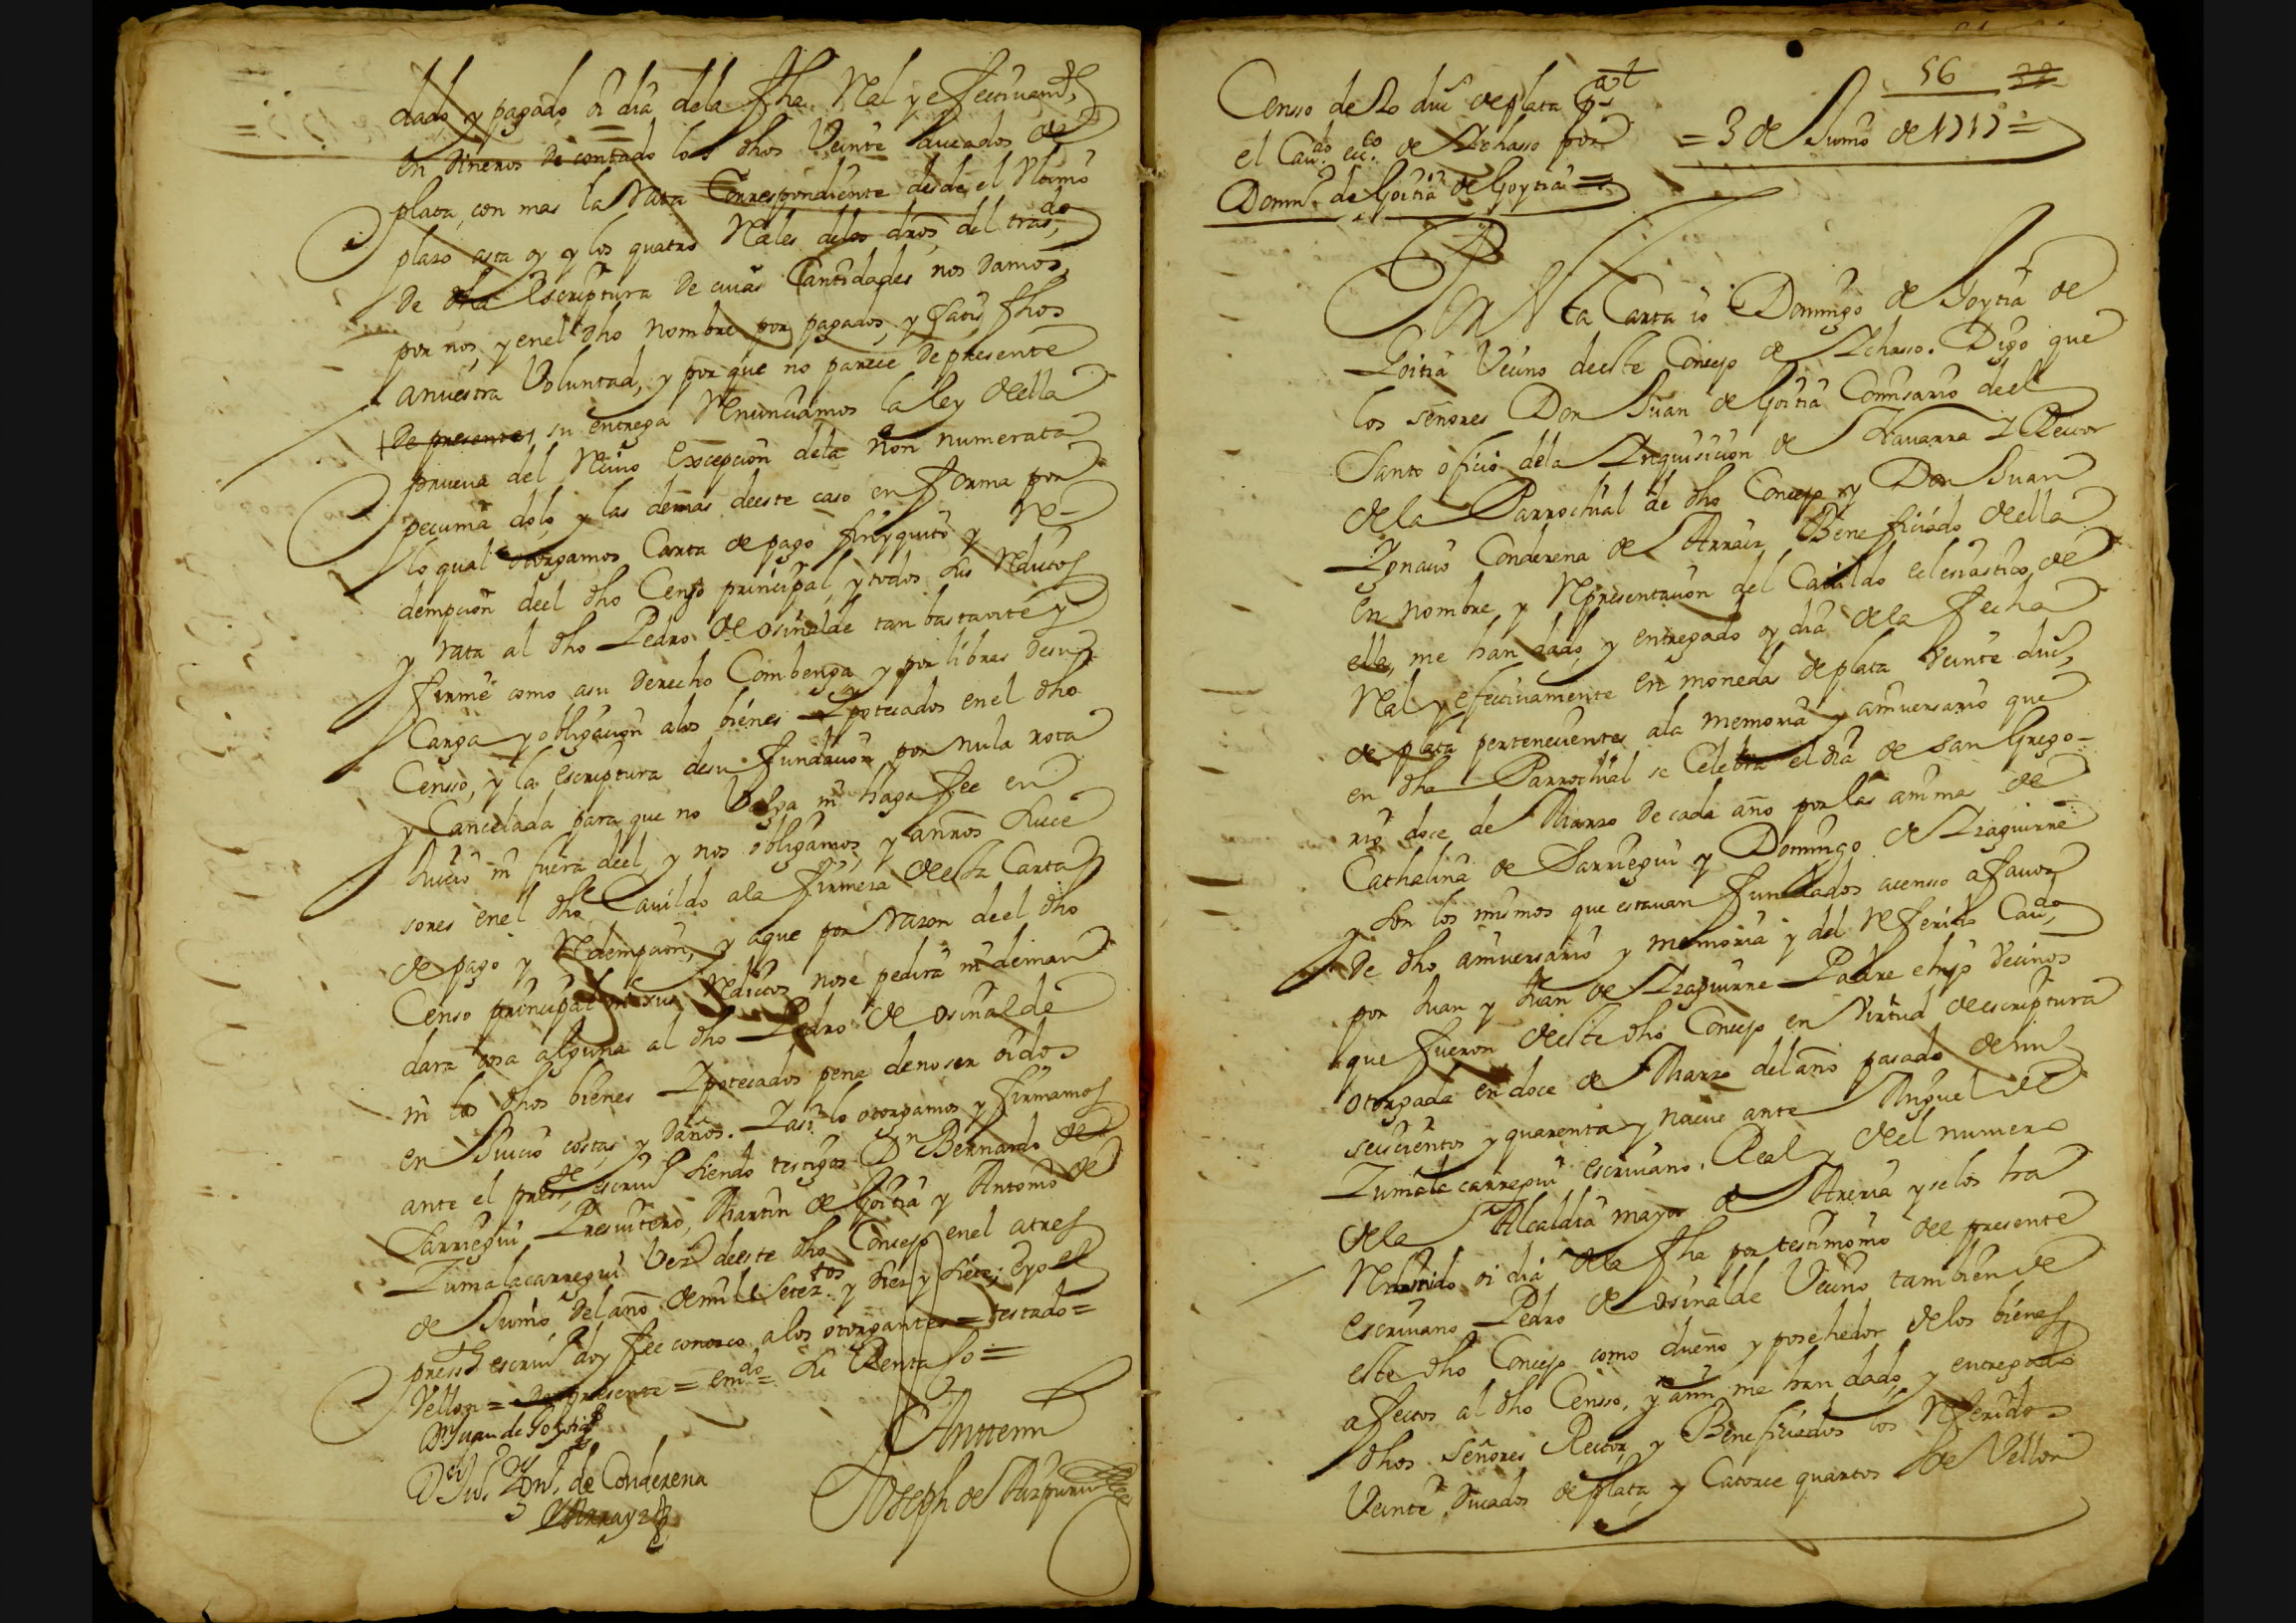 dado, y pagado oi dia dela fha. Real y efectivamte,
en dineros de contado los dhos Veinte ducados de
plata, con mas la rata Correspondiente desde el Ultimo
plazo asta oy y los quatro Reales delos dros, del trasdo,
de dha Escriptura de cuias Cantidades nos damos,
por nos, y en el dho nombre por pagados, y satisfhos
anuestra Voluntad, y por que no parece de presente
de presente, su entrega Renunciamos la ley de ella
prueva del Recivo Excepcion dela non numerata
pecunia dolo, y las demas deeste caso en forma por
lo qual otorgamos Carta de pago finiyquito y Re-
dempcion deel dho Censo principal, y todos sus Reditos
y rata al dho Pedro de osinalde tan bastante y
firme como asu derecho Combenga y por libres desu
Carga y obligacion alos bienes Ypotecados en el dho
Censso, y la escriptura desu fundacion por nula rota
y Cancelada para que no Valga ni haga fee en
Juicio ni fuera deel, y nos obligamos, y anros suce
sores en el dho Cavildo ala firmeza de esta Carta
de pago y Redempcion, y aque por razon deel dho
Censo principal ni sus Reditos nose pedira ni deman
dara cosa alguna al dho Pedro de osinalde
ni los dhos bienes Ypotecados pena denoser oidos
en Juicio costas, y daños. Y asi lo otorgamos y firmamos
ante el presste, escrivo siendo testigos Dn Bernardo de
Sarriegui Presvitero, Martin de Goitia y Antonio de
Zumalacarregui Vezs deeste dho Concejo en el atres
de Junio del año de mil i Seteztos y diez y siete; eyo el
presste escrivo doy fee conozco alos otorgantes = testado =
Vellon = de presente = emdo = Si Renta so =
Dn Juan de Goytia
Dn Jun Ygno de Conderena
y Arrayz
Anttemi
Joseph de Aizpuru
56 32
Censso de 20 duc de plata
el Cavdo ecco de Ichasso por
Domo de Goitia de Goytia =
= 3 de Junio de 1717 =
En Esta Carta io Domingo de Goytia de
Goitia Vecino deeste Concejo de Ichasso. Digo que
los señores Don Juan de Goitia Comisario deel
Santo oficio dela Inquisicion de Navarra y Rector
de la Parrochial de dho Concejo y Don Juan
Ygnacio Conderena de Arraiz Beneficiado de ella
en nombre y Representacion del Cavildo eclesiastico de
ella, me han dado, y entregado oy dia de la fecha
Real y efectivamente en moneda de plata Veinte duc,
de plata pertenecientes ala memoria y aniversario que
en dha Parrochial se Celebra el dia de san Grego-
rio doce de Marzo de cada año por las animas de
Cathalina de Sarriegui y Domingo de Izaguirre
y son los mismos que estavan fundados acensso afavor
de dho aniversario y memoria y del Referido Cavdo,
por Juan y Juan de Izaguirre Padre ehijo Vecinos
que fueron de este dho Concejo en Virtud de escriptura
otorgada en doce de Marzo del año pasado de mil
seiscientos y quarenta y nueve ante Miguel de
Zumalacarregui escrivano Real y deel numero
dela Alcaldia mayor de Areria y selos ha
Redimido oi dia dela fha por testimonio del presente
escrivano Pedro de osinalde Vecino tambien de
este dho Concejo como dueño y posehedor de los bienes
afectos al dho Censso, y a mi me han dado, y entregado
dhos Señores Rector, y Beneficiados los Referidos
Veinte Ducados de plata, y Catorce quartos de Vellon